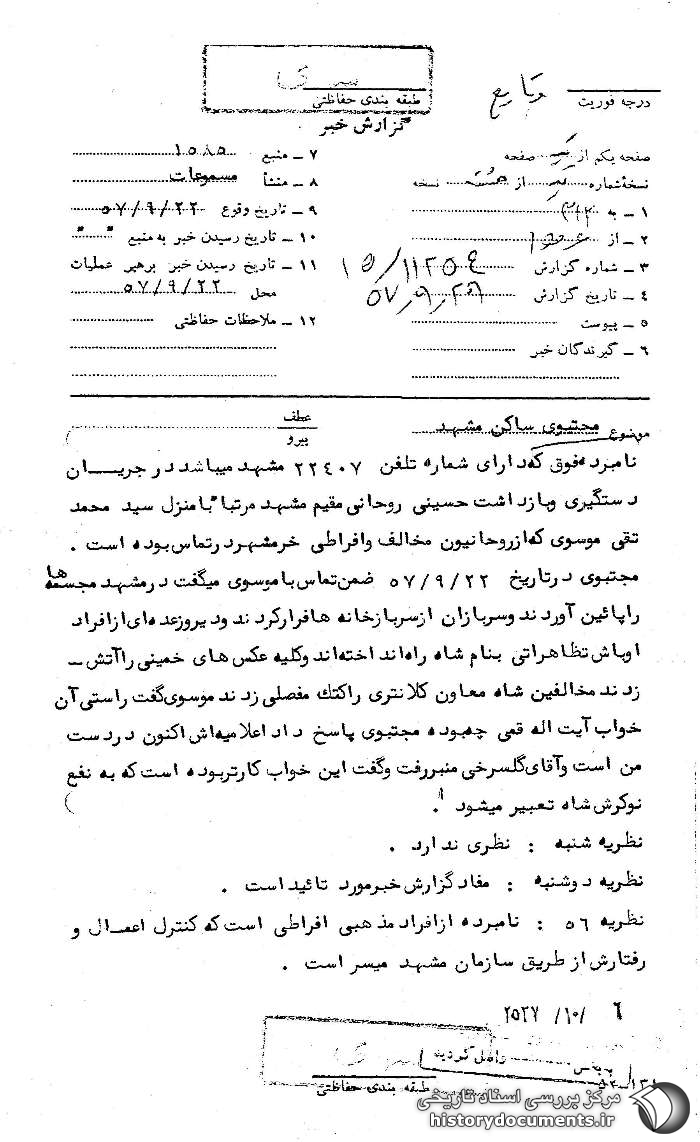 سری
طبقه بندی حفاظتی
درجه فوریت
گزارش خبر
صفحه یکم از یک صفحه
نسخه شماره یک از هشت نسخه
۱ – به ۳۱۲
۲ – از
۳ – شماره گزارش ۱۵/۱۱۲۵۴
۴ – تاریخ گزارش ۵۷/۹/۲۹
۵ – پیوست
۶ – گیرندگان خبر
۷ – منبع ۱۵۸۵
۸ – منشأ مسموعات
۹ – تاریخ وقوع ۵۷/۹/۲۲
۱۰ – تاریخ رسیدن خبر به منبع " "
۱۱ – تاریخ رسیدن خبر برهبر عملیات
محل ۵۷/۹/۲۲
۱۲ – ملاحظات حفاظتی
موضوع مجتبوی ساکن مشهد
عطف
پیرو
نامبرده فوق که دارای شماره تلفن ۲۲۴۰۷ مشهد میباشد در جریان
دستگیری وبازداشت حسینی روحانی مقیم مشهد مرتبا با منزل سید محمد
تقی موسوی که ازروحانیون مخالف وافراطی خرمشهردرتماس بوده است .
مجتبوی درتاریخ ۵۷/۹/۲۲ ضمن تماس با موسوی میگفت درمشهد مجسمه ها
راپائین آوردند وسربازان ازسربازخانه هافرارکردند ودیروزعده ای ازافراد
اوباش تظاهراتی بنام شاه راه انداخته اند وکلیه عکس های خمینی راآتش –
زدند مخالفین شاه معاون کلانتری راکتك مفصلی زدند موسوی گفت راستی آن
خواب آیت اله قمی چه بوده مجتبوی پاسخ داد اعلامیه اش اکنون دردست
من است وآقای گلسرخی منبررفت وگفت این خواب کارتربوده است که به نفع
نوکرش شاه تعبیر میشود .
نظریه شنبه : نظری ندارد .
نظریه دوشنبه : مفاد گزارش خبرمورد تائید است .
نظریه ۵۶ : نامبرده ازافراد مذهبی افراطی است که کنترل اعمال و
رفتارش از طریق سازمان مشهد میسر است .
۶ /۱۰/ ۲۵۳۷
واصل گردید
طبقه بندی حفاظتی
مرکز بررسی اسناد تاریخی
historydocuments.ir